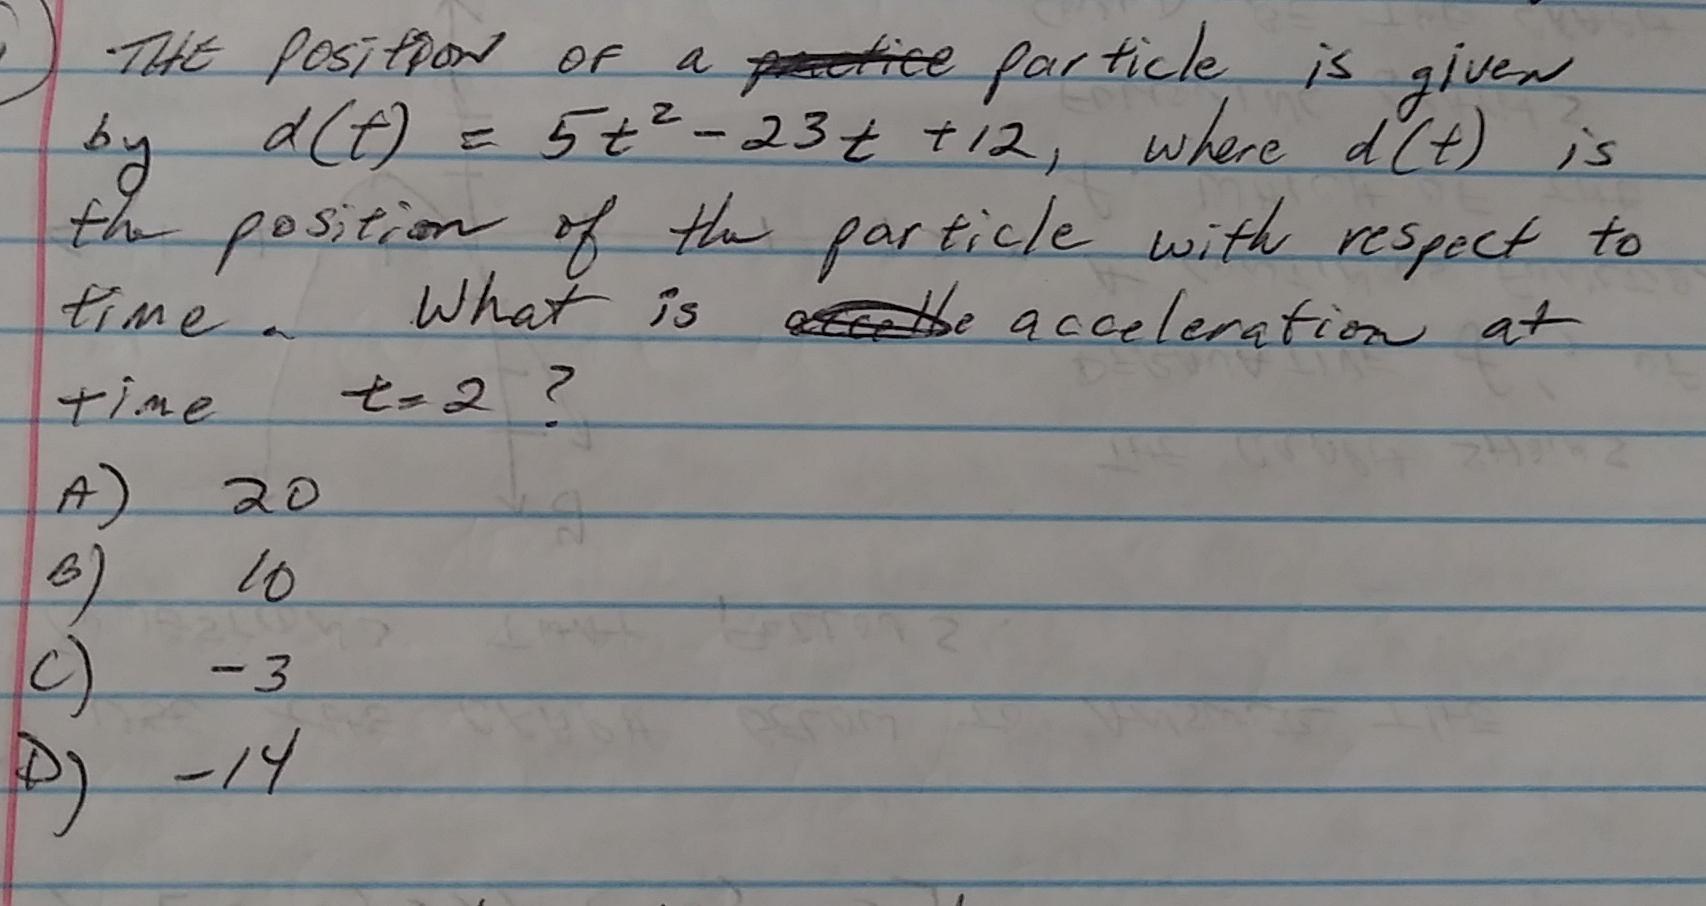 THE Position OF a particle is given
by d(t) = 5t² - 23t + 12, where d(t) is
the position of the particle with respect to
time. What is acceleration at
time t=2?
A) 20
B) 10
C) -3
D) -14